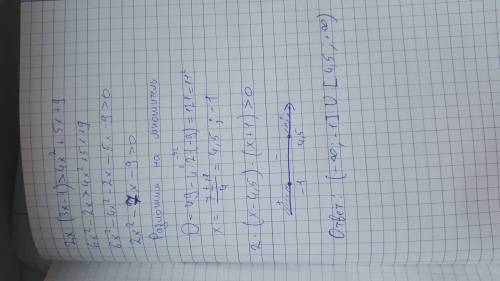 2x · (3x-1) > 4x² + 5x + 9
6x² - 2x > 4x² + 5x + 9
6x² - 4x² - 2x - 5x - 9 > 0
2x² - 7x - 9 > 0
Разложим на множители
D = 49 - 4 · 2 · (-9) = 121 = 11²
x = (7 ± 11)/4 = 4,5 ; -1
2 · (x - 4,5) · (x + 1) > 0
+ - +
-1 4,5
Ответ: (-∞; -1] U [4,5; ∞)